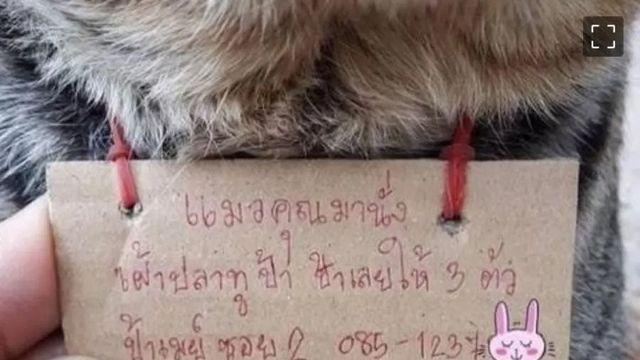 แมวคุณมานั่ง
เฝ้าปลาทูป้า ป้าเลยให้ 3 ตัว
ป้าเมย์ ซอย 2 085-123